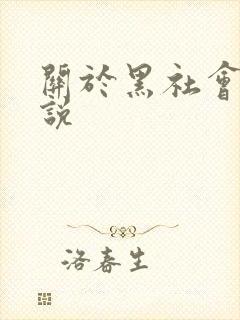 關於黑社會
說
洛春生